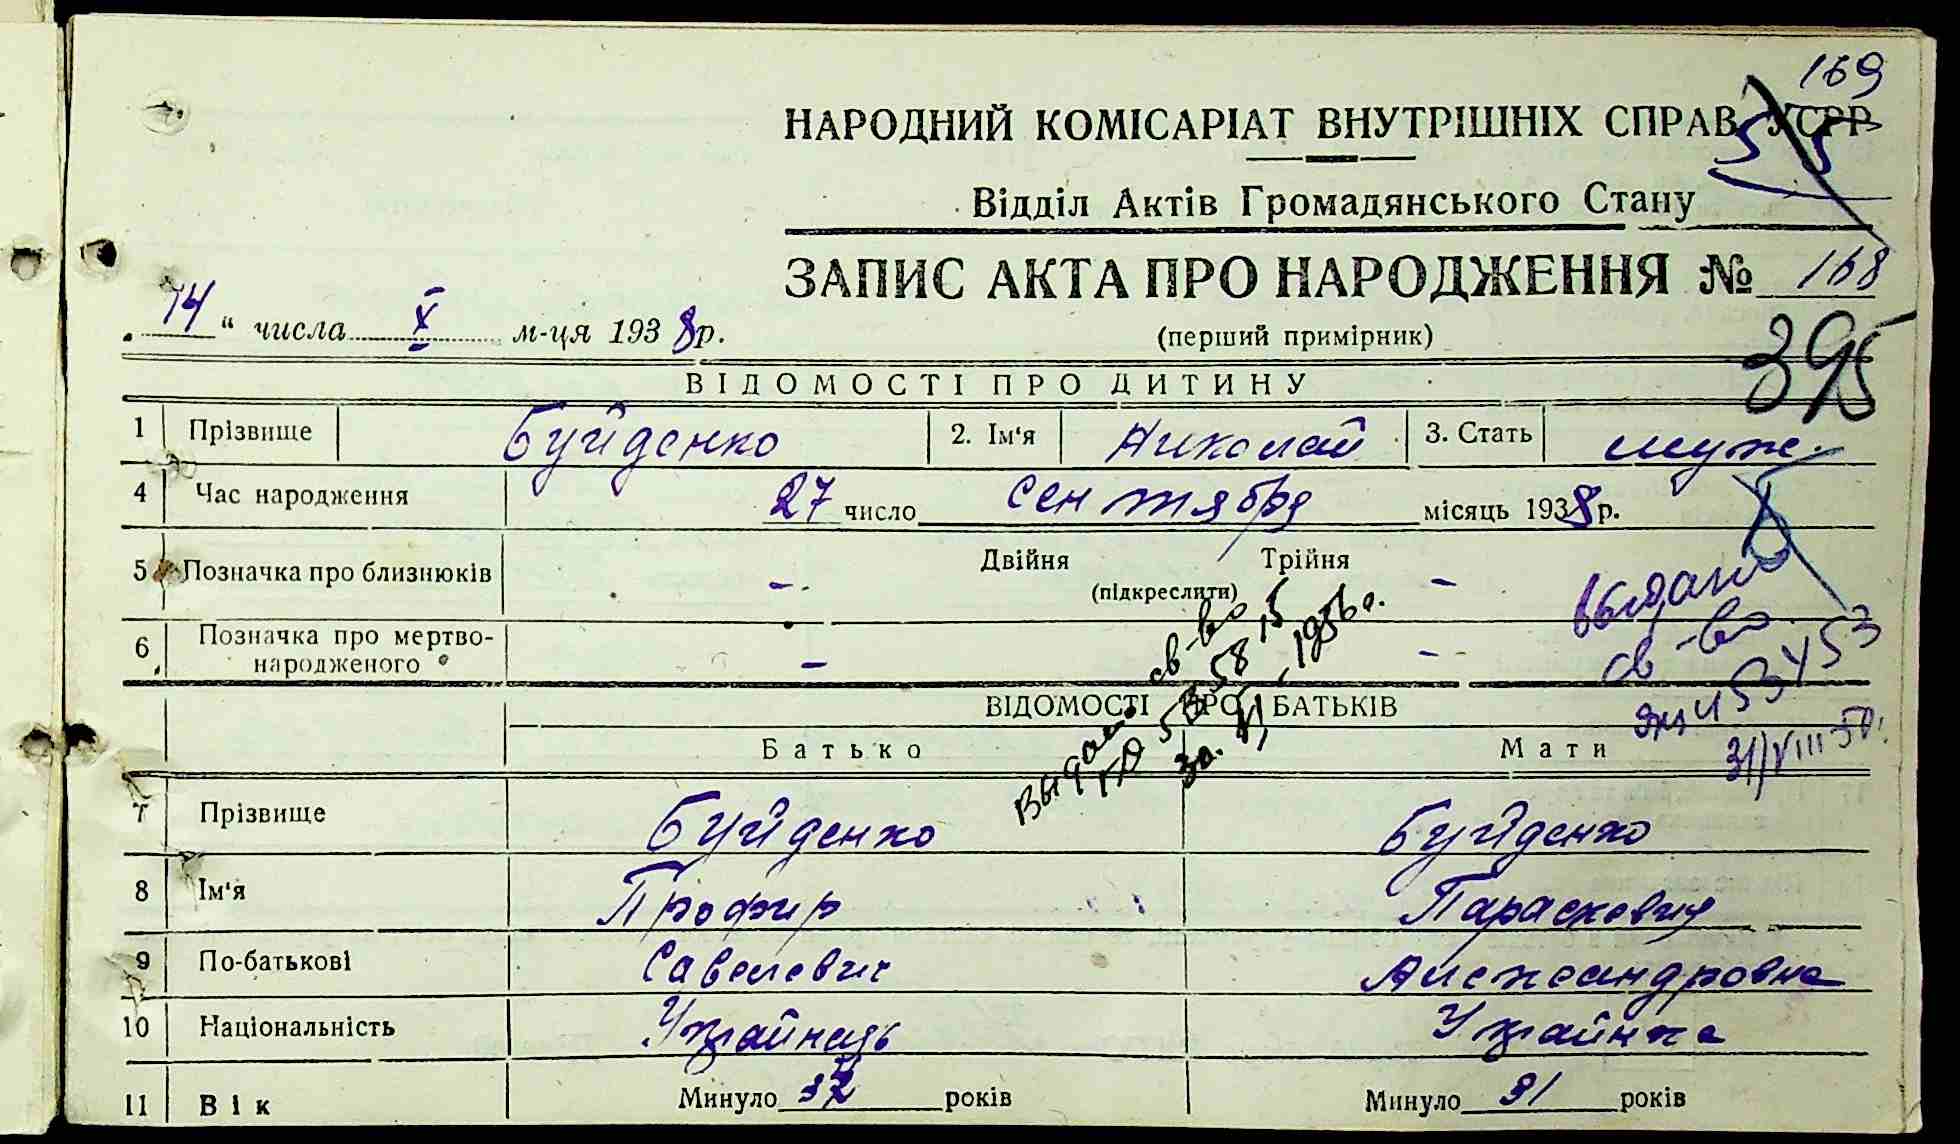 169
НАРОДНИЙ КОМІСАРІАТ ВНУТРІШНІХ СПРАВ УСРР
55
Відділ Актів Громадянського Стану
ЗАПИС АКТА ПРО НАРОДЖЕННЯ № 168
„14“ числа X м-ця 1938р.
(перший примірник)
395
ВІДОМОСТІ ПРО ДИТИНУ
1 Прізвище Буйденко 2. Ім'я Николай 3. Стать муж.
4 Час народження 27 число сентября місяць 1938р.
5 Позначка про близнюків - Двійня Трійня -
(підкреслити)
6 Позначка про мертво-
народженого - -
выдано
св-во
453453
31/VIII 50г.
выдано св-во
5835815
VI 1956г.
ВІДОМОСТІ ПРО БАТЬКІВ
Батько Мати
7 Прізвище Буйденко Буйденко
8 Ім'я Профир Параскевия
9 По-батькові Савелевич Александровна
10 Національність Украйнець Украйнка
11 Вік Минуло 37 років Минуло 31 років